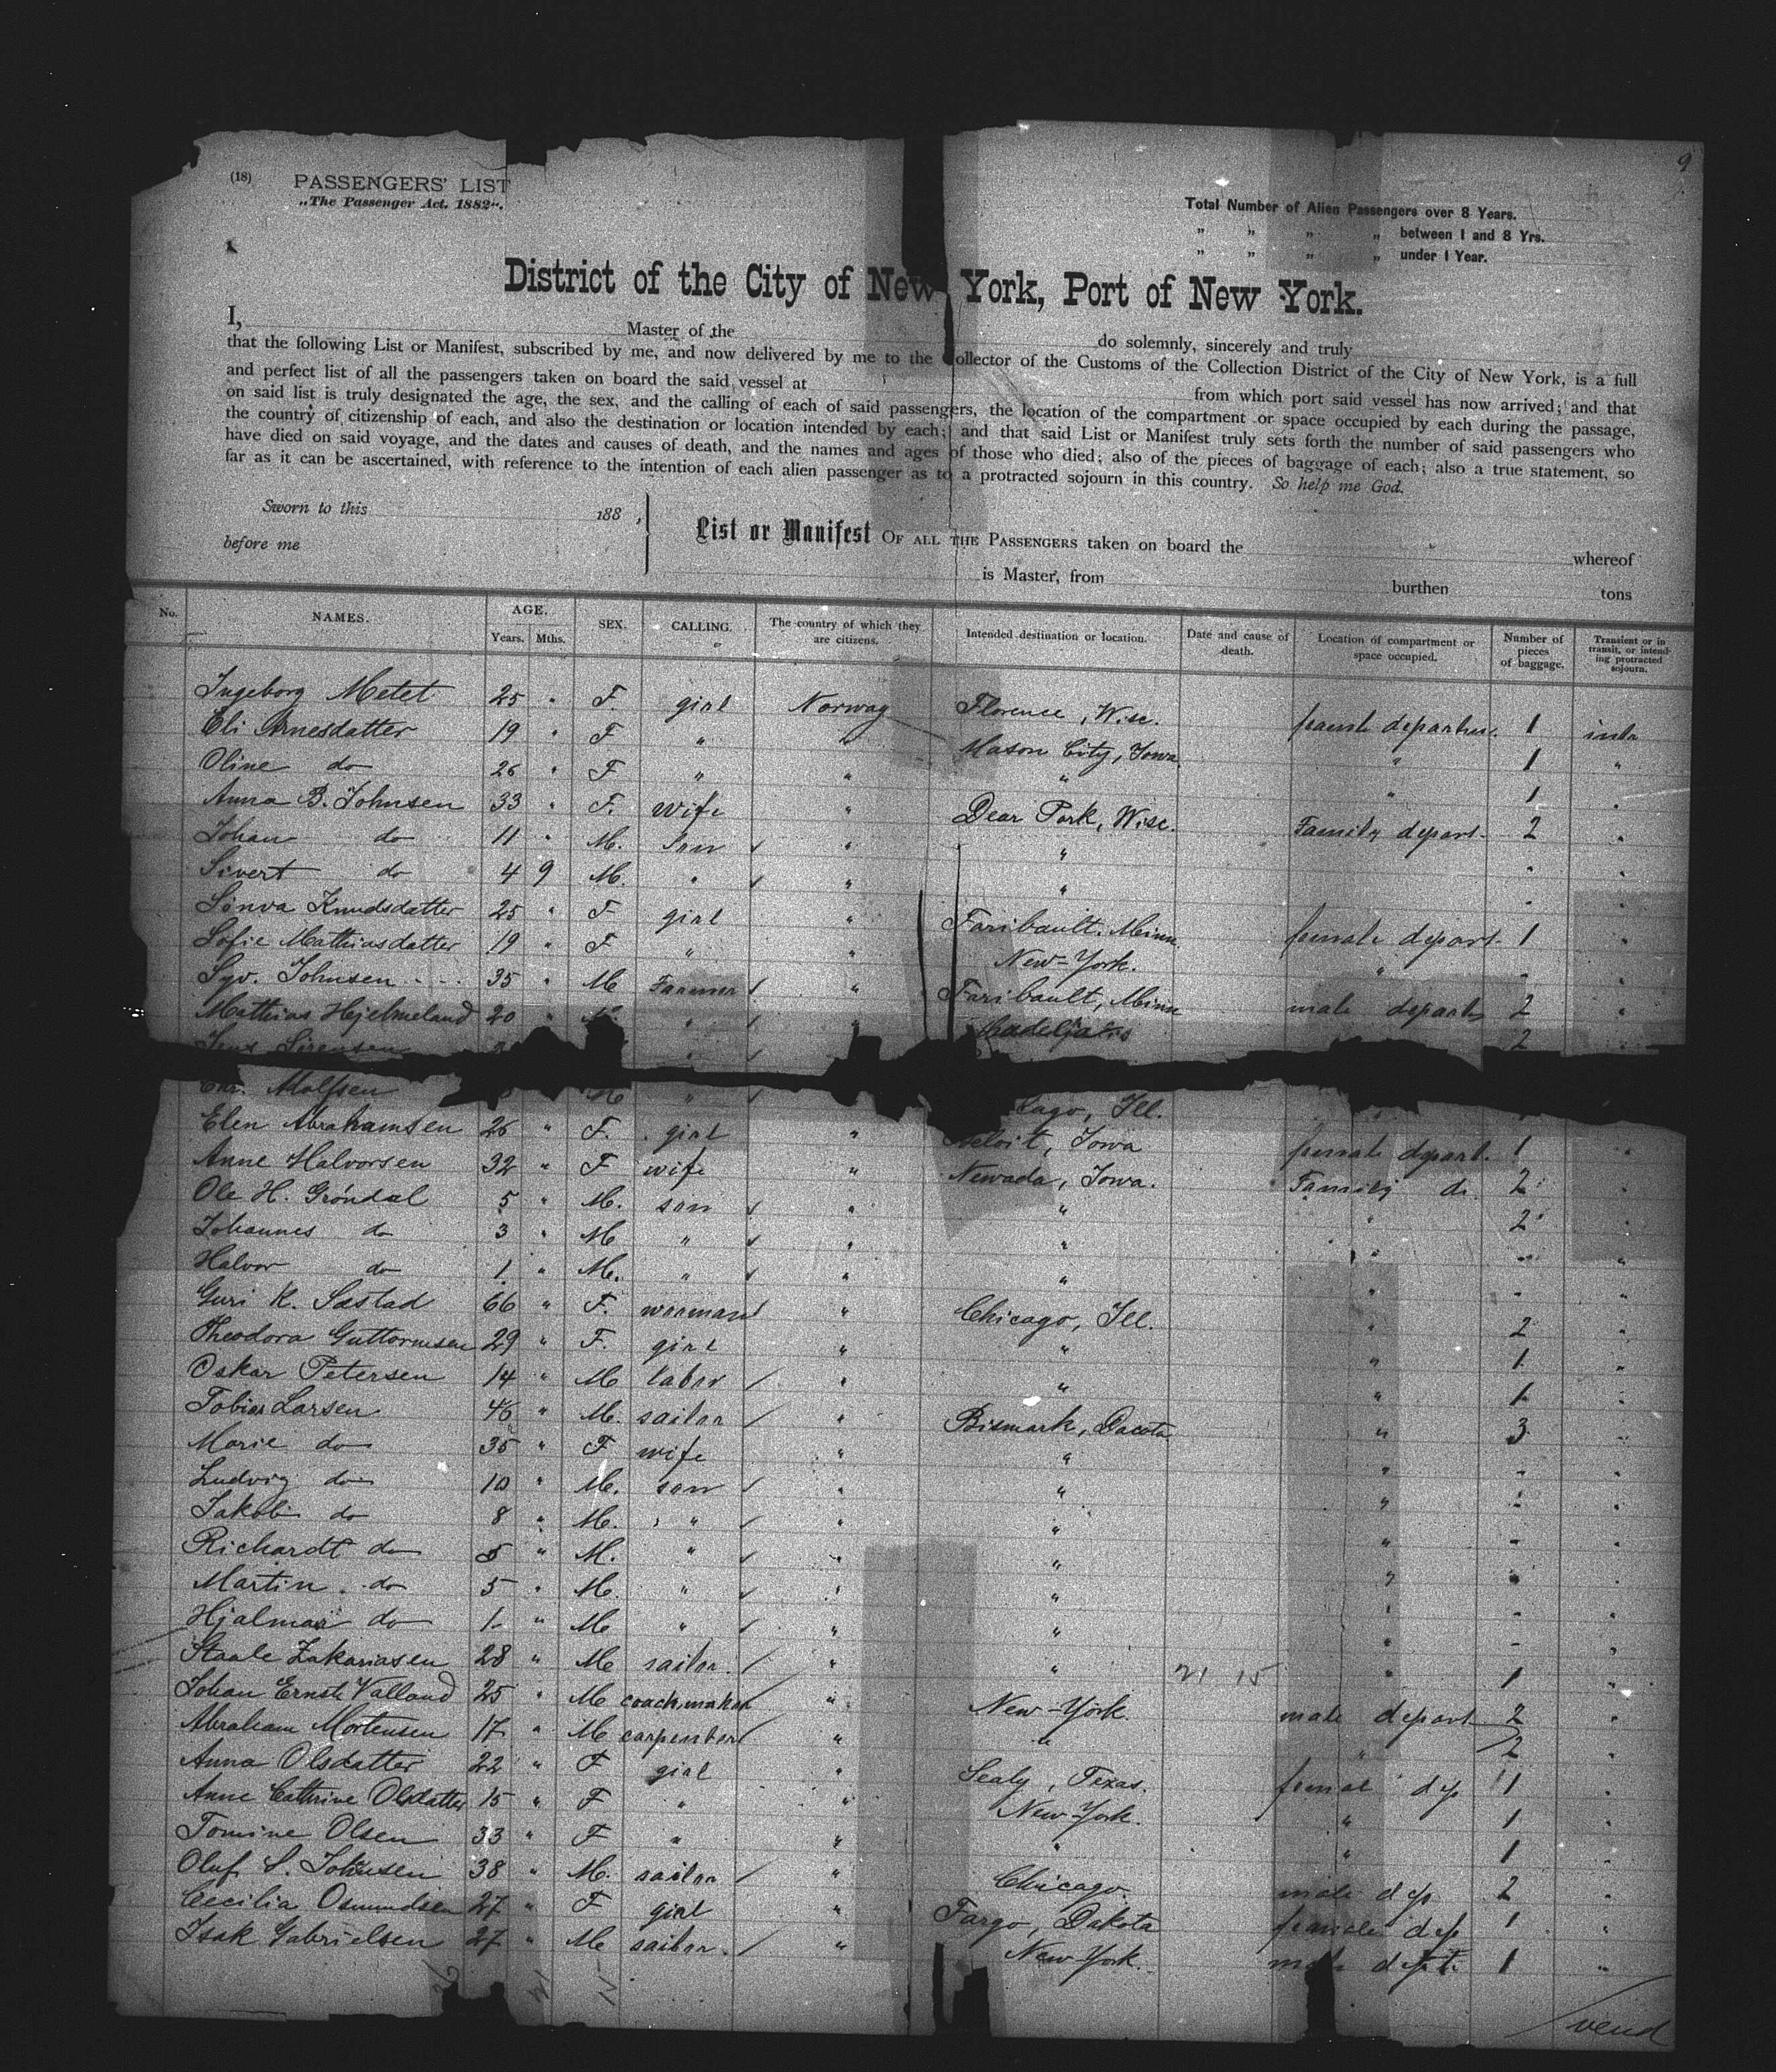 9
(18) PASSENGERS' LIST
„The Passenger Act. 1882“.
Total Number of Alien Passengers over 8 Years.
„ „ „ „ between 1 and 8 Yrs.
„ „ „ „ under 1 Year.
District of the City of New York, Port of New York.
I, Master of the do solemnly, sincerely and truly
that the following List or Manifest, subscribed by me, and now delivered by me to the Collector of the Customs of the Collection District of the City of New York, is a full
and perfect list of all the passengers taken on board the said vessel at from which port said vessel has now arrived; and that
on said list is truly designated the age, the sex, and the calling of each of said passengers, the location of the compartment or space occupied by each during the passage,
the country of citizenship of each, and also the destination or location intended by each; and that said List or Manifest truly sets forth the number of said passengers who
have died on said voyage, and the dates and causes of death, and the names and ages of those who died; also of the pieces of baggage of each; also a true statement, so
far as it can be ascertained, with reference to the intention of each alien passenger as to a protracted sojourn in this country. So help me God.
Sworn to this 188 ,
before me
List or Manifest OF ALL THE PASSENGERS taken on board the whereof
is Master, from burthen tons
No. NAMES. AGE. Years. Mths. SEX. CALLING. The country of which they are citizens. Intended destination or location. Date and cause of death. Location of compartment or space occupied. Number of pieces of baggage. Transient or in transit, or intending protracted sojourn.
Ingeborg Metet 25 " F. girl Norway Florence, Wisc. 1
Eli Arnesdatter 19 " F " " Mason City, Iowa. " 1 "
Oline do 26 " F " " " " 1 "
Anna B. Johnsen 33 " F. wife " Dear Park, Wisc. Family depart. 2 "
Johan do 11 " M. son " " " "
Sivert do 4 9 M. " " " " "
Sönva Knudsdatter 25 " F girl " Faribault. Minn. female depart. 1 "
Sofie Mathiasdatter 19 " F " " New-York. " "
Syv. Johnsen 35 " M Farmer " Faribault, Minn male depart 2 "
Mathias Hjelmeland 20 " M " " 2 "
Jens Sörensen " 2
Chr. M "
Elen Abrahamsen 26 " F. girl " Beloit, Iowa female depart. 1 "
Anne Halvorsen 32 " F wife " Newada, Iowa. Family d. 2 "
Ole H. Gröndal 5 " M. son " " " 2 "
Johannes do 3 " M " " " " "
Halvor do 1 " M. " " " " - "
Guri K. Sæstad 66 " F. womman " Chicago, Ill. " 2 "
Theodora Guttormsen 29 " F. girl " " " 1 "
Oskar Petersen 14 " M labor " " " 1 "
Tobias Larsen 46 " M. sailor " Bismark, Dacota " 3 "
Marie do 35 " F wife " " " - "
Ludvig do 10 " M. son " " " - "
Jakob do 8 " M. " " " " - "
Richardt do 5 " M. " " " " "
Martin do 5 " M. " " " " - "
Hjalmar do 1 " M " " " " - "
Staale Zakariasen 28 " M sailor. " " " 1 "
Johan Ernst Valland 25 " M coachmaker " New-York. male depart 2 "
Abraham Mortensen 17 " M carpenter " " " 2 "
Anna Olsdatter 22 " F girl " Sealy, Texas. femal dep 1 "
Anne Cathrine Olsdatter 15 " F " " New-York. " 1 "
Tomine Olsen 33 " F " " " " 1 "
Oluf S. Johnsen 38 " M. sailor " Chicago. male dep 2 "
Cecilia Osmundsen 27 " F girl " Fargo, Dakota female dep 1 "
Isak Gabrielsen 27 " M sailor. " New-York. 1 "
vend